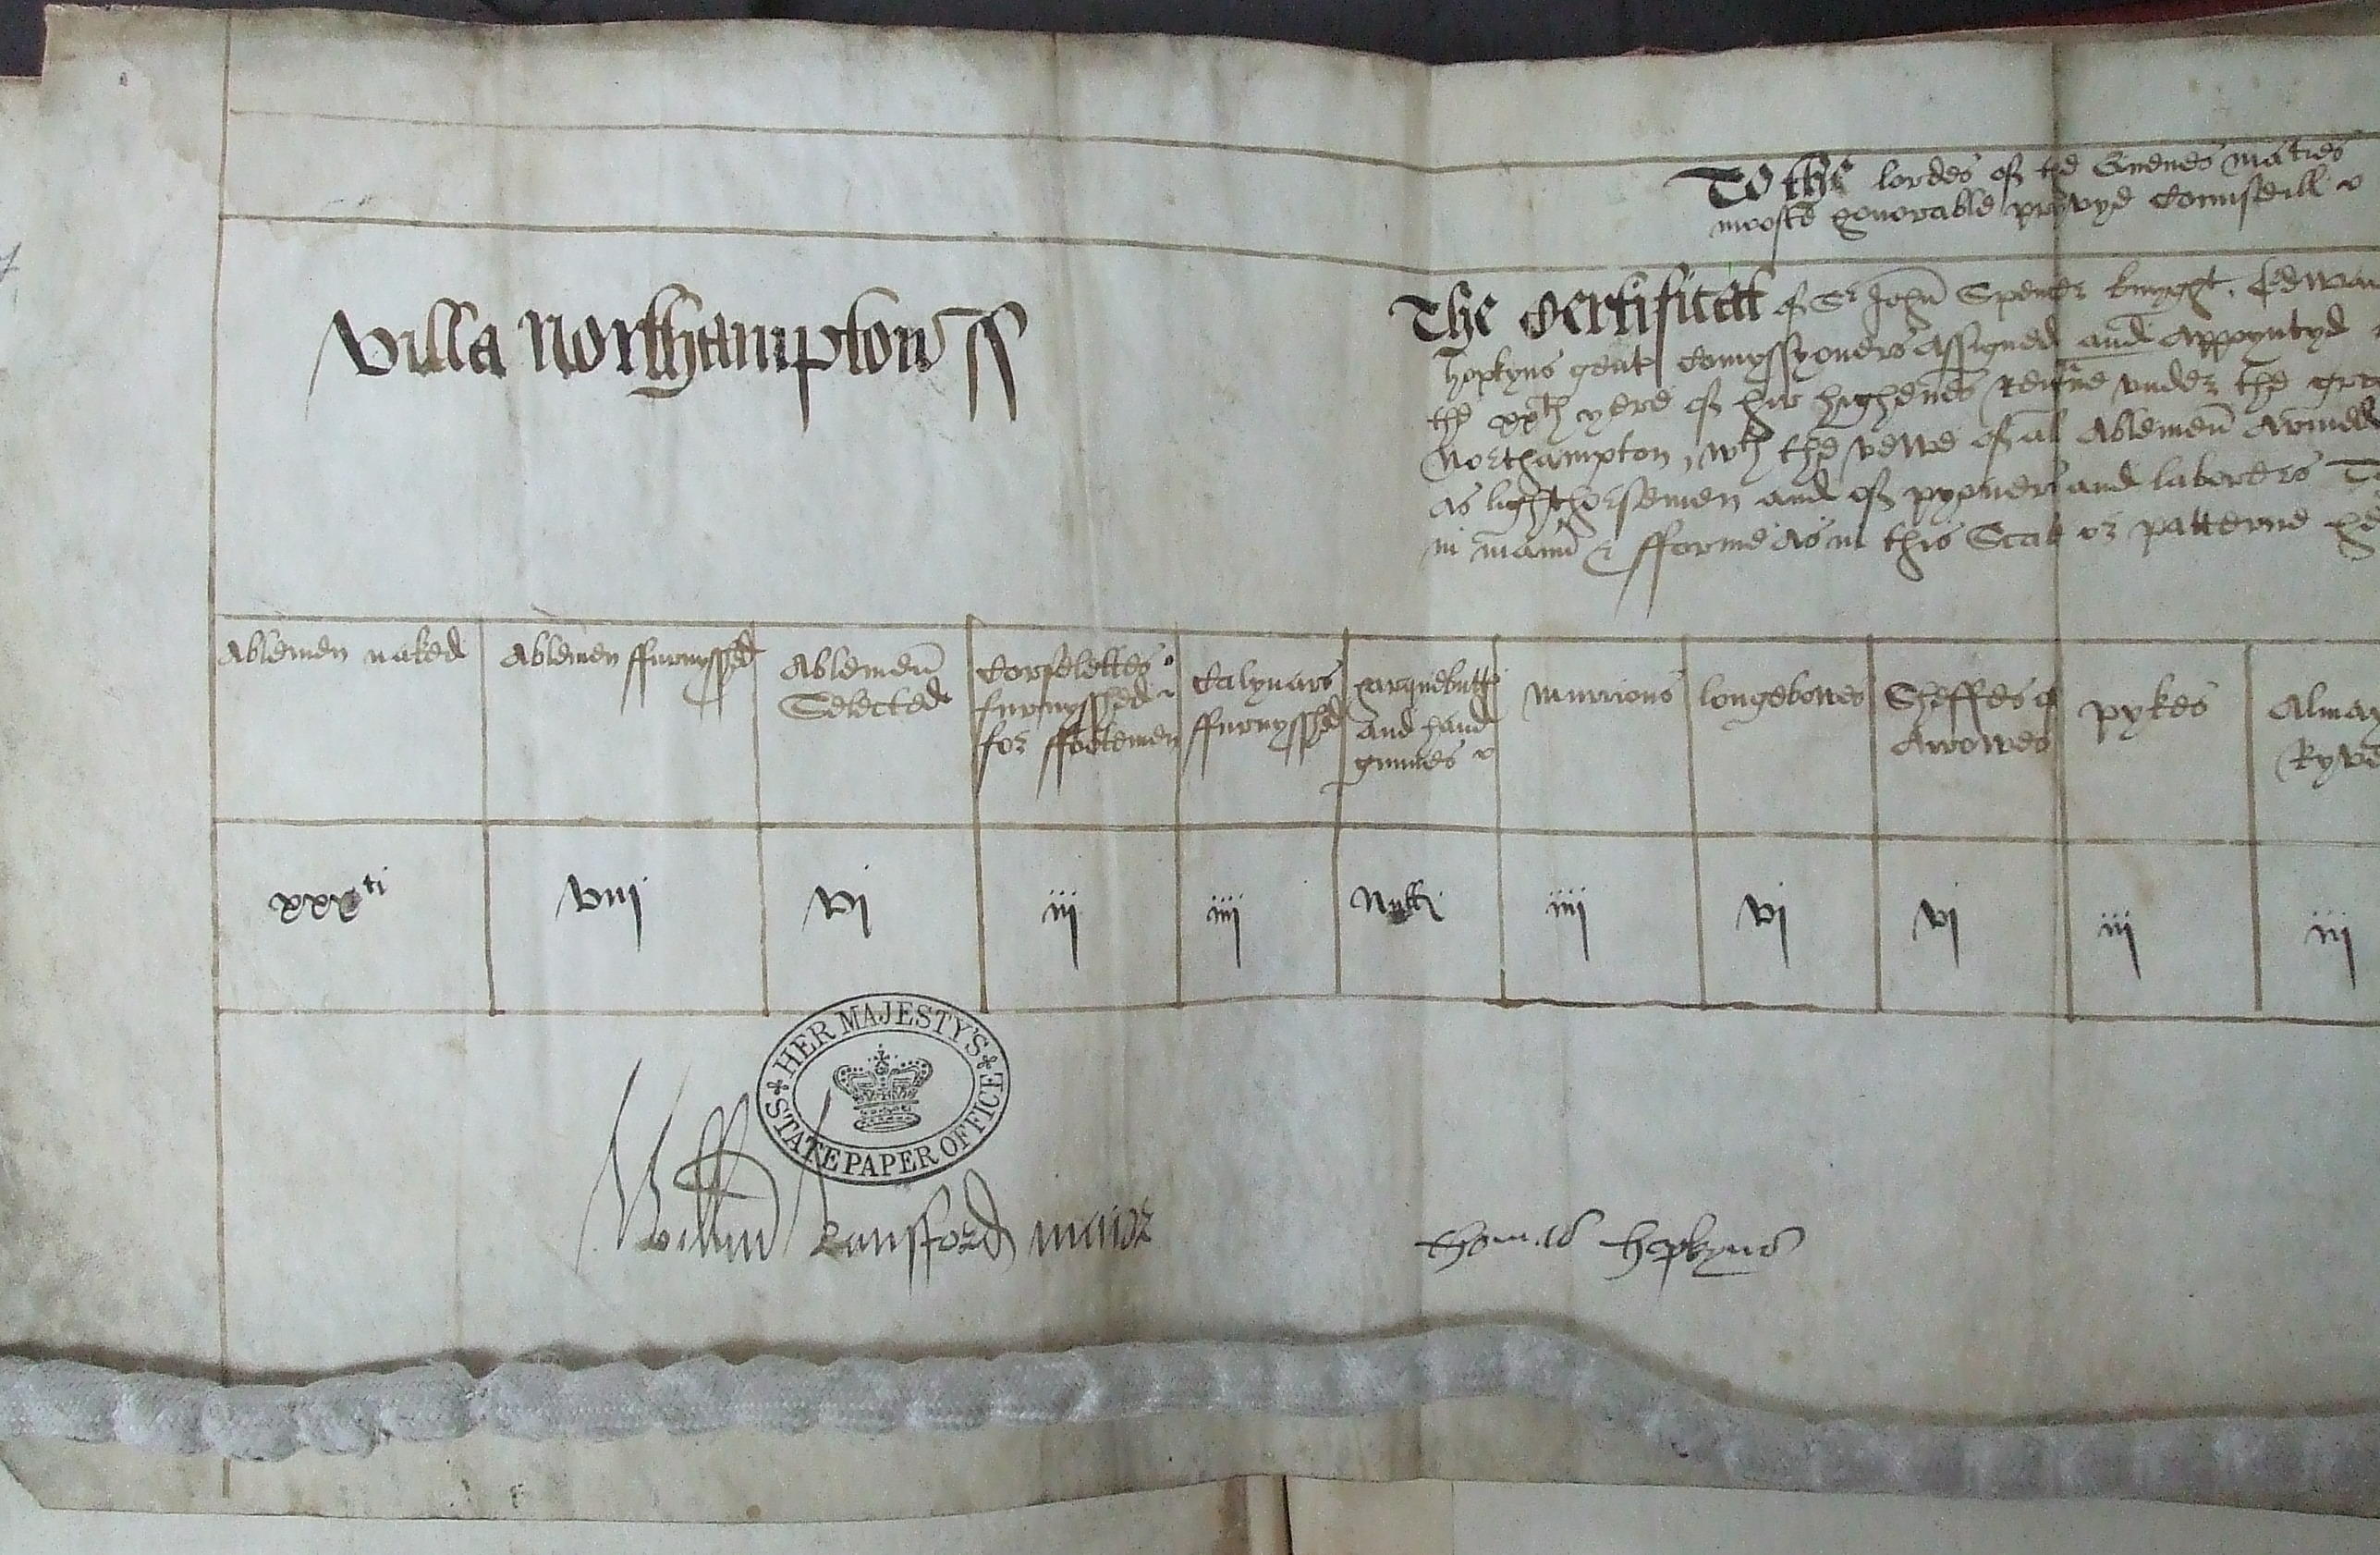 To the lordes of the Quenes maties
mooste honorable pryvye Counsaill
Villa Northampton ss
The Certificatt of Sr John Spencer knyght, Edwar
Hopkyns gent Comyssyoners Assigned and Appoyntyd
the xxth yere of hir highenes Reigne under the gre
Northampton, wth the vewe of al Ablemen Armed
as lighthorsemen and of pyoners and laborers
in mann & fforme as in this Scat or patterne
Ablemen naked
Ablemen ffurnysshed
Ablemen
Selected
Corselettes
furnysshed
for ffootemen
Calyvars
ffurnysshed
harquebutts
and hand
gunnes
Murrions
longebowes
Sheffes of
Arrowes
pykes
Alma
Ryve
xxxti
viij
vj
iij
iiij
Null
iiij
vj
vj
iij
iij
HER MAJESTY'S
STATE PAPER OFFICE
Willm Raynsford maior
thomas hopkyns